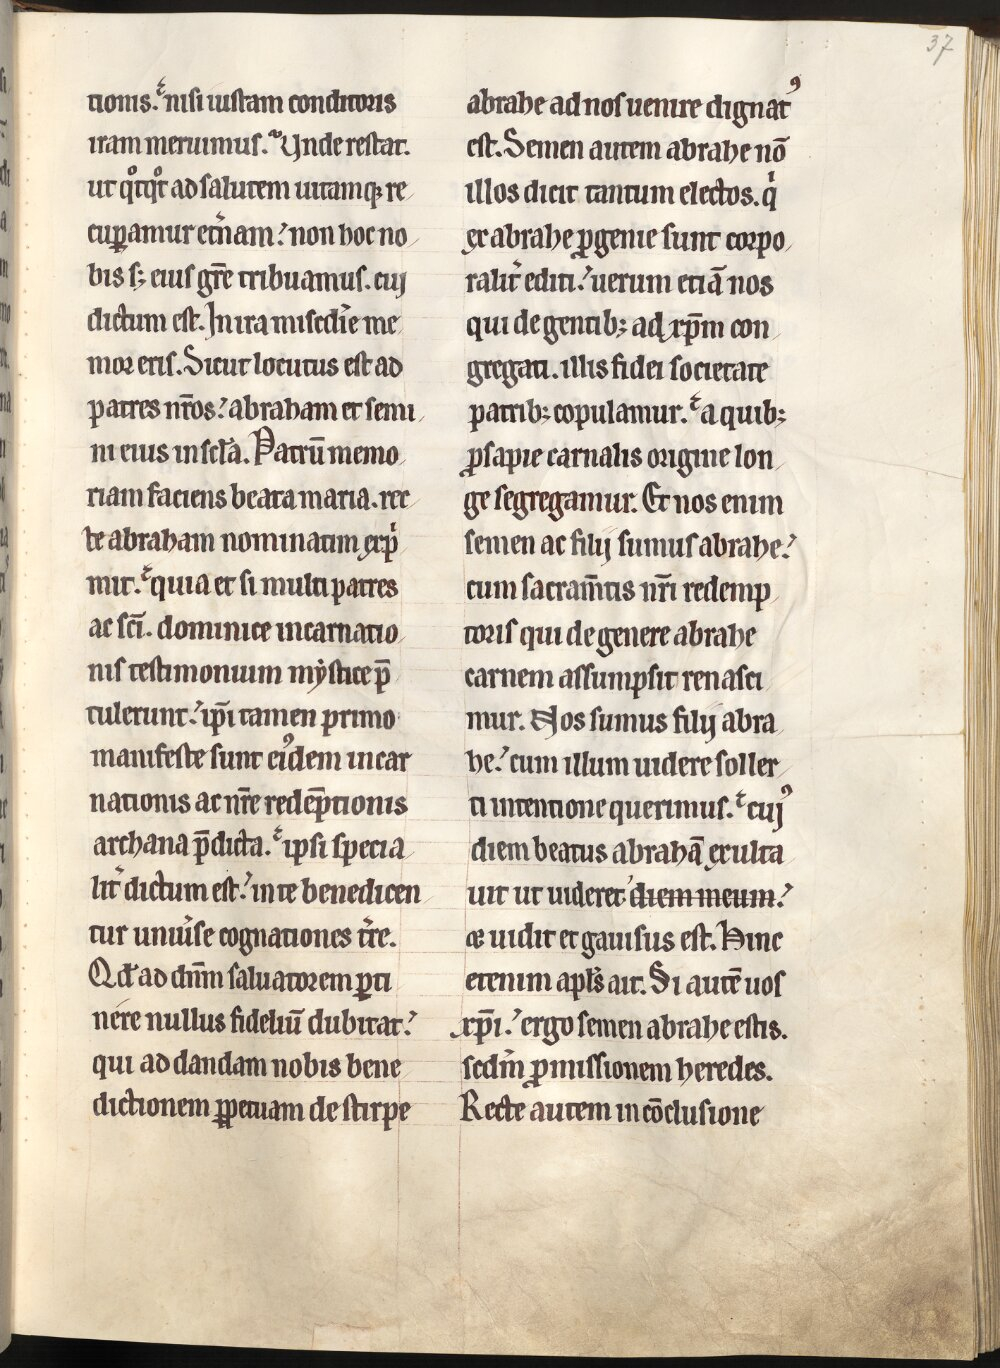 37
tionis. nisi iustam conditoris
iram meruimus. Unde restat.
ut qͦtqͦt ad salutem uitamq; re
cuꝑamur et̾nam? non hoc no
bis s; eius gr̄e tribuamus. cuj
dictum est. In ira misc̄die me
mor eris. Sicut locutus est ad
patres nr̄os? abraham et semi
ni eius in sc̄la. Patrū memo
riam faciens beata maria. rec
te abraham nominatim exp̍
mit. quia et si multi patres
ac sc̄i. dominice incarnatio
nis testimonium mẏstice p̄
tulerunt? ip̄i tamen primo
manifeste sunt eiꝰdem incar
nationis ac nr̄e redēptionis
archana p̄dicta. ipsi specia
lit̾ dictum est? in te benedicen
tur uniu̾se cognationes t̾re.
Qd̄ ad dn̄m saluatorem ꝑti
nere nullus fideliū dubitat?
qui ad dandam nobis bene
dictionem ꝑpetuam de stirpe
abrahe ad nos uenire dignatꝰ
est. Semen autem abrahe nō
illos dicit tantum electos. q̍
ex abrahe ꝓgenie sunt corpo
ralit̾ editi? uerum etiā nos
qui de gentib; ad xp̄m con
gregati. illis fidei societate
patrib; copulamur. a quib;
ꝓsapie carnalis origine lon
ge segregamur. Et nos enim
semen ac filij sumus abrahe?
cum sacram̄tis nr̄i redemp
toris qui de genere abrahe
carnem assumpsit renasci
mur. Nos sumus filij abra
he? cum illum uidere soller
ti intentione querimus. cujꝰ
diem beatus abrahā exulta
uit ut uideret diem meum?
& uidit et gauisus est. Hinc
etenim apl̄s ait. Si autē uos
xp̄i? ergo semen abrahe estis.
scd̄m ꝓmissionem heredes.
Recte autem in cōclusione